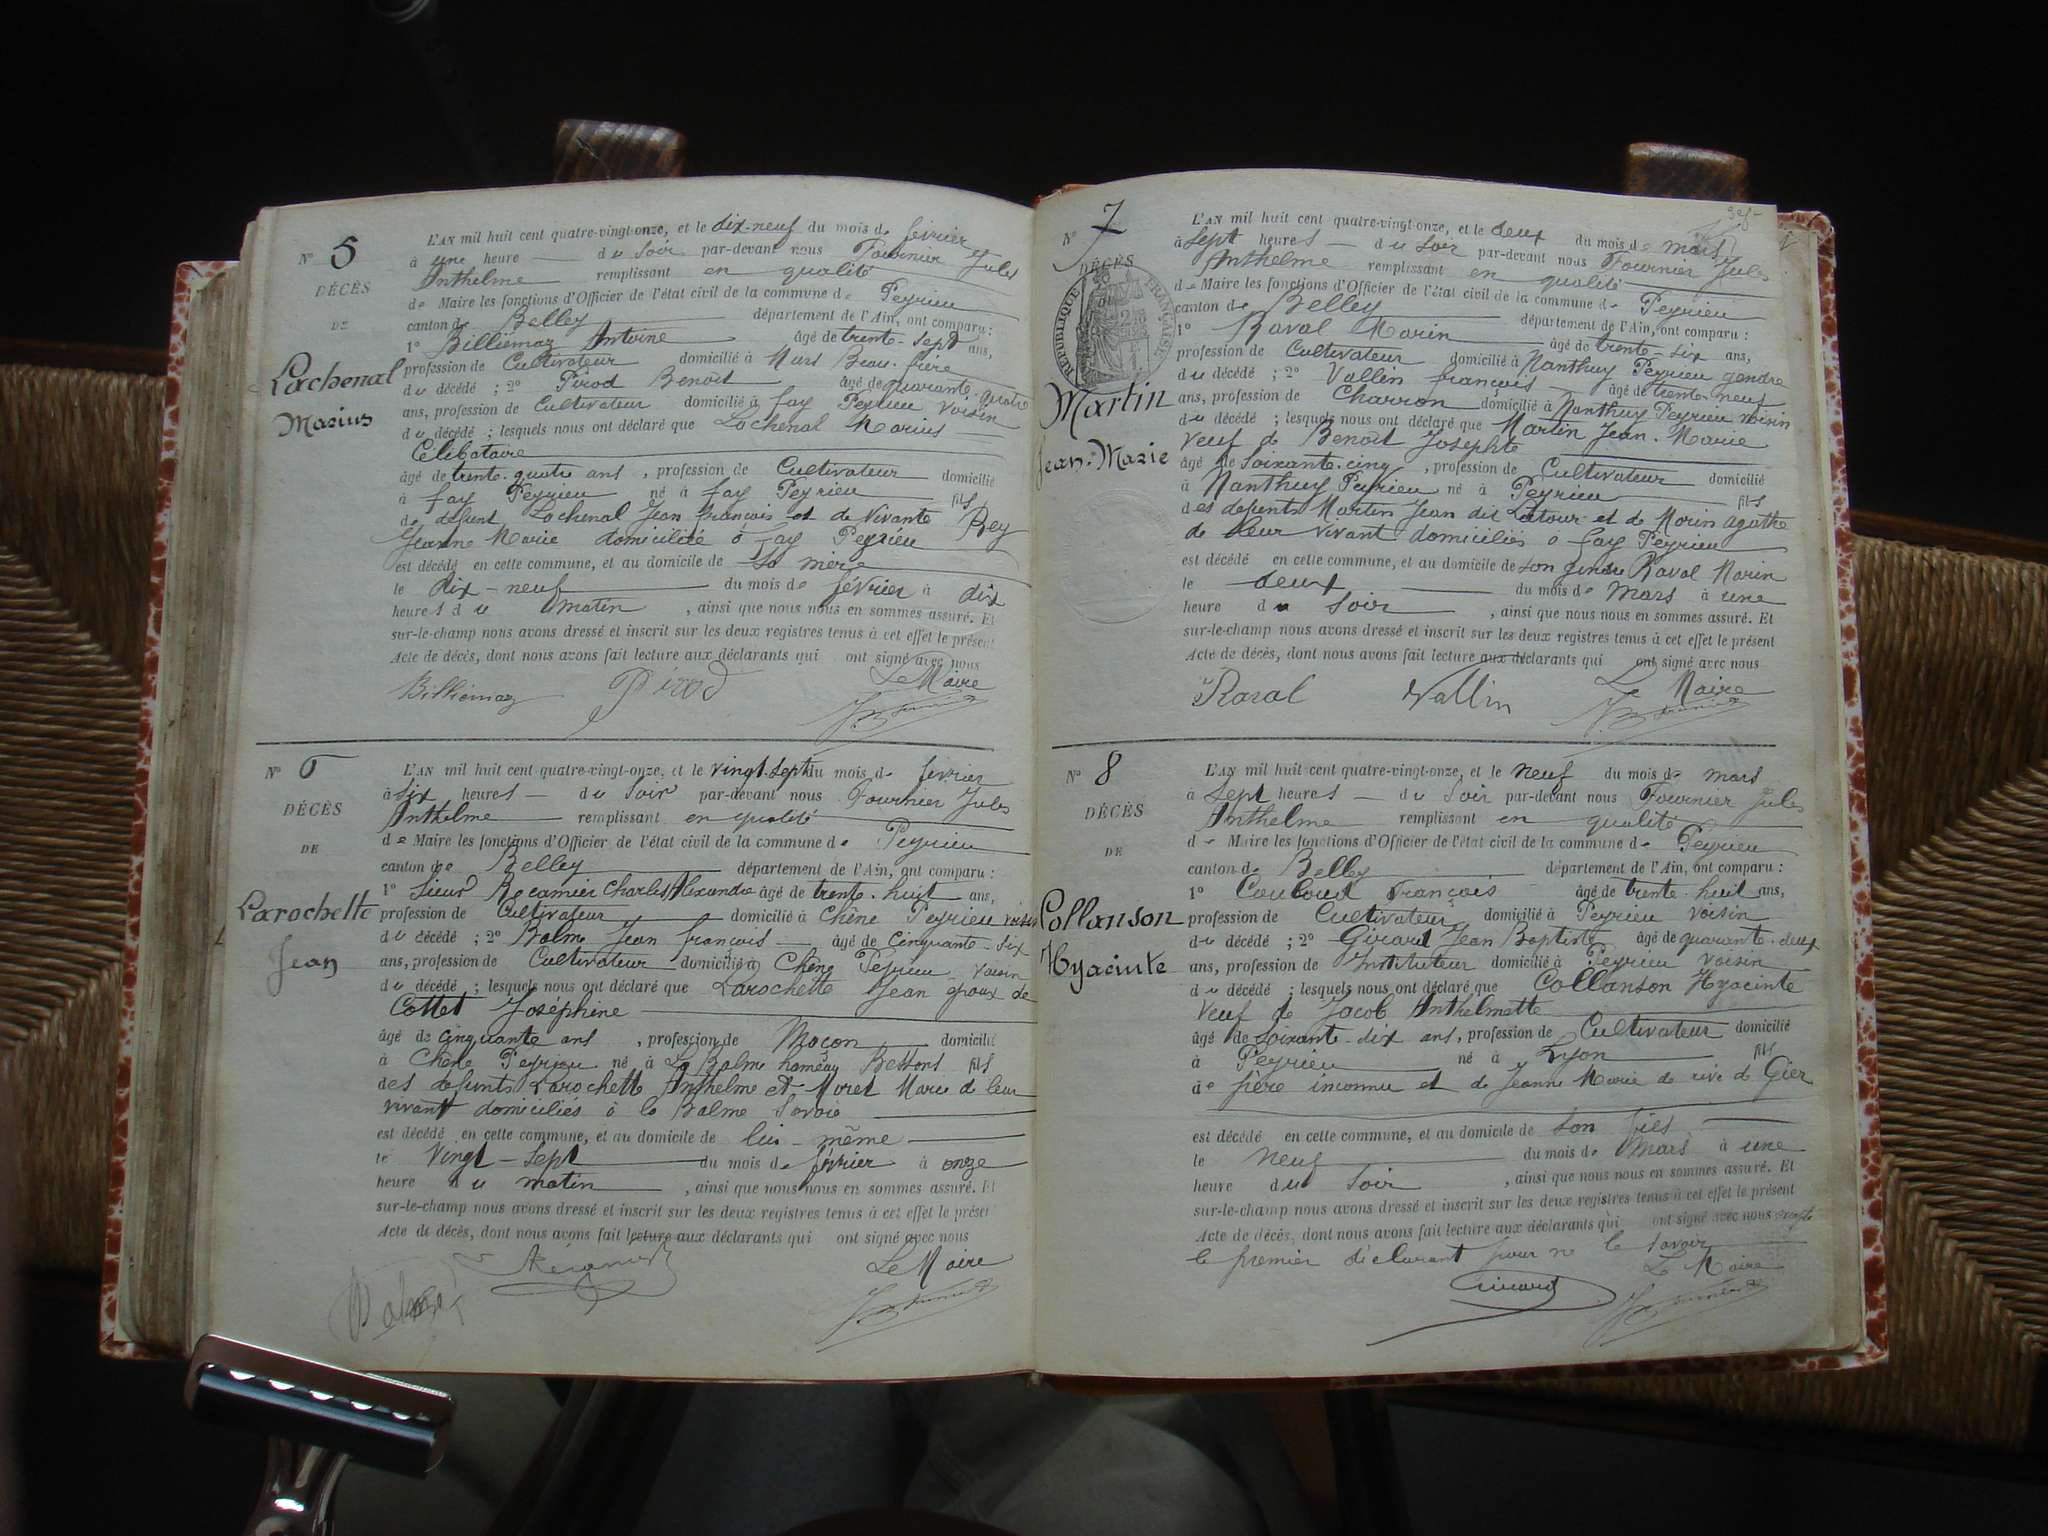 N° 5
DÉCÈS
DE
Lachenal
Marius
L'AN mil huit cent quatre-vingt-onze, et le dix-neuf du mois de février
à une heure du Soir par-devant nous Fournier Jules
Anthelme remplissant en qualité
de Maire les fonctions d'Officier de l'état civil de la commune de Peyrieu
canton de Belley département de l'Ain, ont comparu :
1° Billiémaz Antoine âgé de trente-sept ans,
profession de Cultivateur domicilié à Nars Beau-frère
du décédé ; 2° Pirod Benoît âgé de quarante-quatre
ans, profession de Cultivateur domicilié à fay Peyrieu voisin
du décédé ; lesquels nous ont déclaré que Lachenal Marius
Célibataire
âgé de trente-quatre ans, profession de Cultivateur domicilié
à fay Peyrieu né à fay Peyrieu fils
de défunt Lachenal Jean françois et de vivante Rey
Jeanne Marie domiciliée à fay Peyrieu
est décédé en cette commune, et au domicile de Sa mère
le dix-neuf du mois de février à dix
heures du matin, ainsi que nous nous en sommes assuré. Et
sur-le-champ nous avons dressé et inscrit sur les deux registres tenus à cet effet le présent
Acte de décès, dont nous avons fait lecture aux déclarants qui ont signé avec nous
Billiémaz Pirod Le Maire
N° 6
DÉCÈS
DE
Larochette
Jean
L'AN mil huit cent quatre-vingt-onze, et le vingt-sept du mois de février
à six heures du Soir par-devant nous Fournier Jules
Anthelme remplissant en qualité
de Maire les fonctions d'Officier de l'état civil de la commune de Peyrieu
canton de Belley département de l'Ain, ont comparu :
1° Sieur Récamier Charles Alexandre âgé de trente-huit ans,
profession de Cultivateur domicilié à Chêne Peyrieu voisin
du décédé ; 2° Balme Jean françois âgé de Cinquante-six
ans, profession de Cultivateur domicilié à Chêne Peyrieu voisin
du décédé ; lesquels nous ont déclaré que Larochette Jean époux de
Cottet Joséphine
âgé de cinquante ans, profession de Maçon domicilié
à Chêne Peyrieu né à La Balme hameau Bettons fils
des défunts Larochette Anthelme et Moret Marie de leur
vivant domiciliés à la Balme Savoie
est décédé en cette commune, et au domicile de lui-même
le Vingt-Sept du mois de février à onze
heure du matin, ainsi que nous nous en sommes assuré. Et
sur-le-champ nous avons dressé et inscrit sur les deux registres tenus à cet effet le présent
Acte de décès, dont nous avons fait lecture aux déclarants qui ont signé avec nous
Le Maire
N° 7
DÉCÈS
RÉPUBLIQUE FRANÇAISE
Martin
Jean-Marie
L'AN mil huit cent quatre-vingt-onze, et le deux du mois de mars
à sept heures du soir par-devant nous Fournier Jules
Anthelme remplissant en qualité
de Maire les fonctions d'Officier de l'état civil de la commune de Peyrieu
canton de Belley département de l'Ain, ont comparu :
1° Raval Marin âgé de trente-six ans,
profession de Cultivateur domicilié à Nanthuy Peyrieu gendre
du décédé ; 2° Vallin françois âgé de trente-neuf
ans, profession de Charron domicilié à Nanthuy Peyrieu voisin
du décédé ; lesquels nous ont déclaré que Martin Jean-Marie
Veuf de Benoit Josephte
âgé de Soixante-cinq, profession de Cultivateur domicilié
à Nanthuy Peyrieu né à Peyrieu fils
des défunts Martin Jean dit Latour et de Morin agathe
de leur vivant domiciliés à fay Peyrieu
est décédé en cette commune, et au domicile de son gendre Raval Marin
le deux du mois de Mars à une
heure du Soir, ainsi que nous nous en sommes assuré. Et
sur-le-champ nous avons dressé et inscrit sur les deux registres tenus à cet effet le présent
Acte de décès, dont nous avons fait lecture aux déclarants qui ont signé avec nous
Raval Vallin Le Maire
N° 8
DÉCÈS
DE
Collanson
Hyacinte
L'AN mil huit cent quatre-vingt-onze, et le neuf du mois de mars
à Sept heures du Soir par-devant nous Fournier Jules
Anthelme remplissant en qualité
de Maire les fonctions d'Officier de l'état civil de la commune de Peyrieu
canton de Belley département de l'Ain, ont comparu :
1° Couloud François âgé de trente-huit ans,
profession de Cultivateur domicilié à Peyrieu voisin
du décédé ; 2° Girard Jean Baptiste âgé de quarante-deux
ans, profession de Instituteur domicilié à Peyrieu voisin
du décédé ; lesquels nous ont déclaré que Collanson Hyacinte
Veuf de Jacob Anthelmette
âgé de Soixante-dix ans, profession de Cultivateur domicilié
à Peyrieu né à Lyon fils
de père inconnu et de Jeanne Marie de rive de Gier
est décédé en cette commune, et au domicile de son fils
le neuf du mois de Mars à une
heure du Soir, ainsi que nous nous en sommes assuré. Et
sur-le-champ nous avons dressé et inscrit sur les deux registres tenus à cet effet le présent
Acte de décès, dont nous avons fait lecture aux déclarants qui ont signé avec nous excepté
le premier déclarant pour ne le savoir
Girard Le Maire